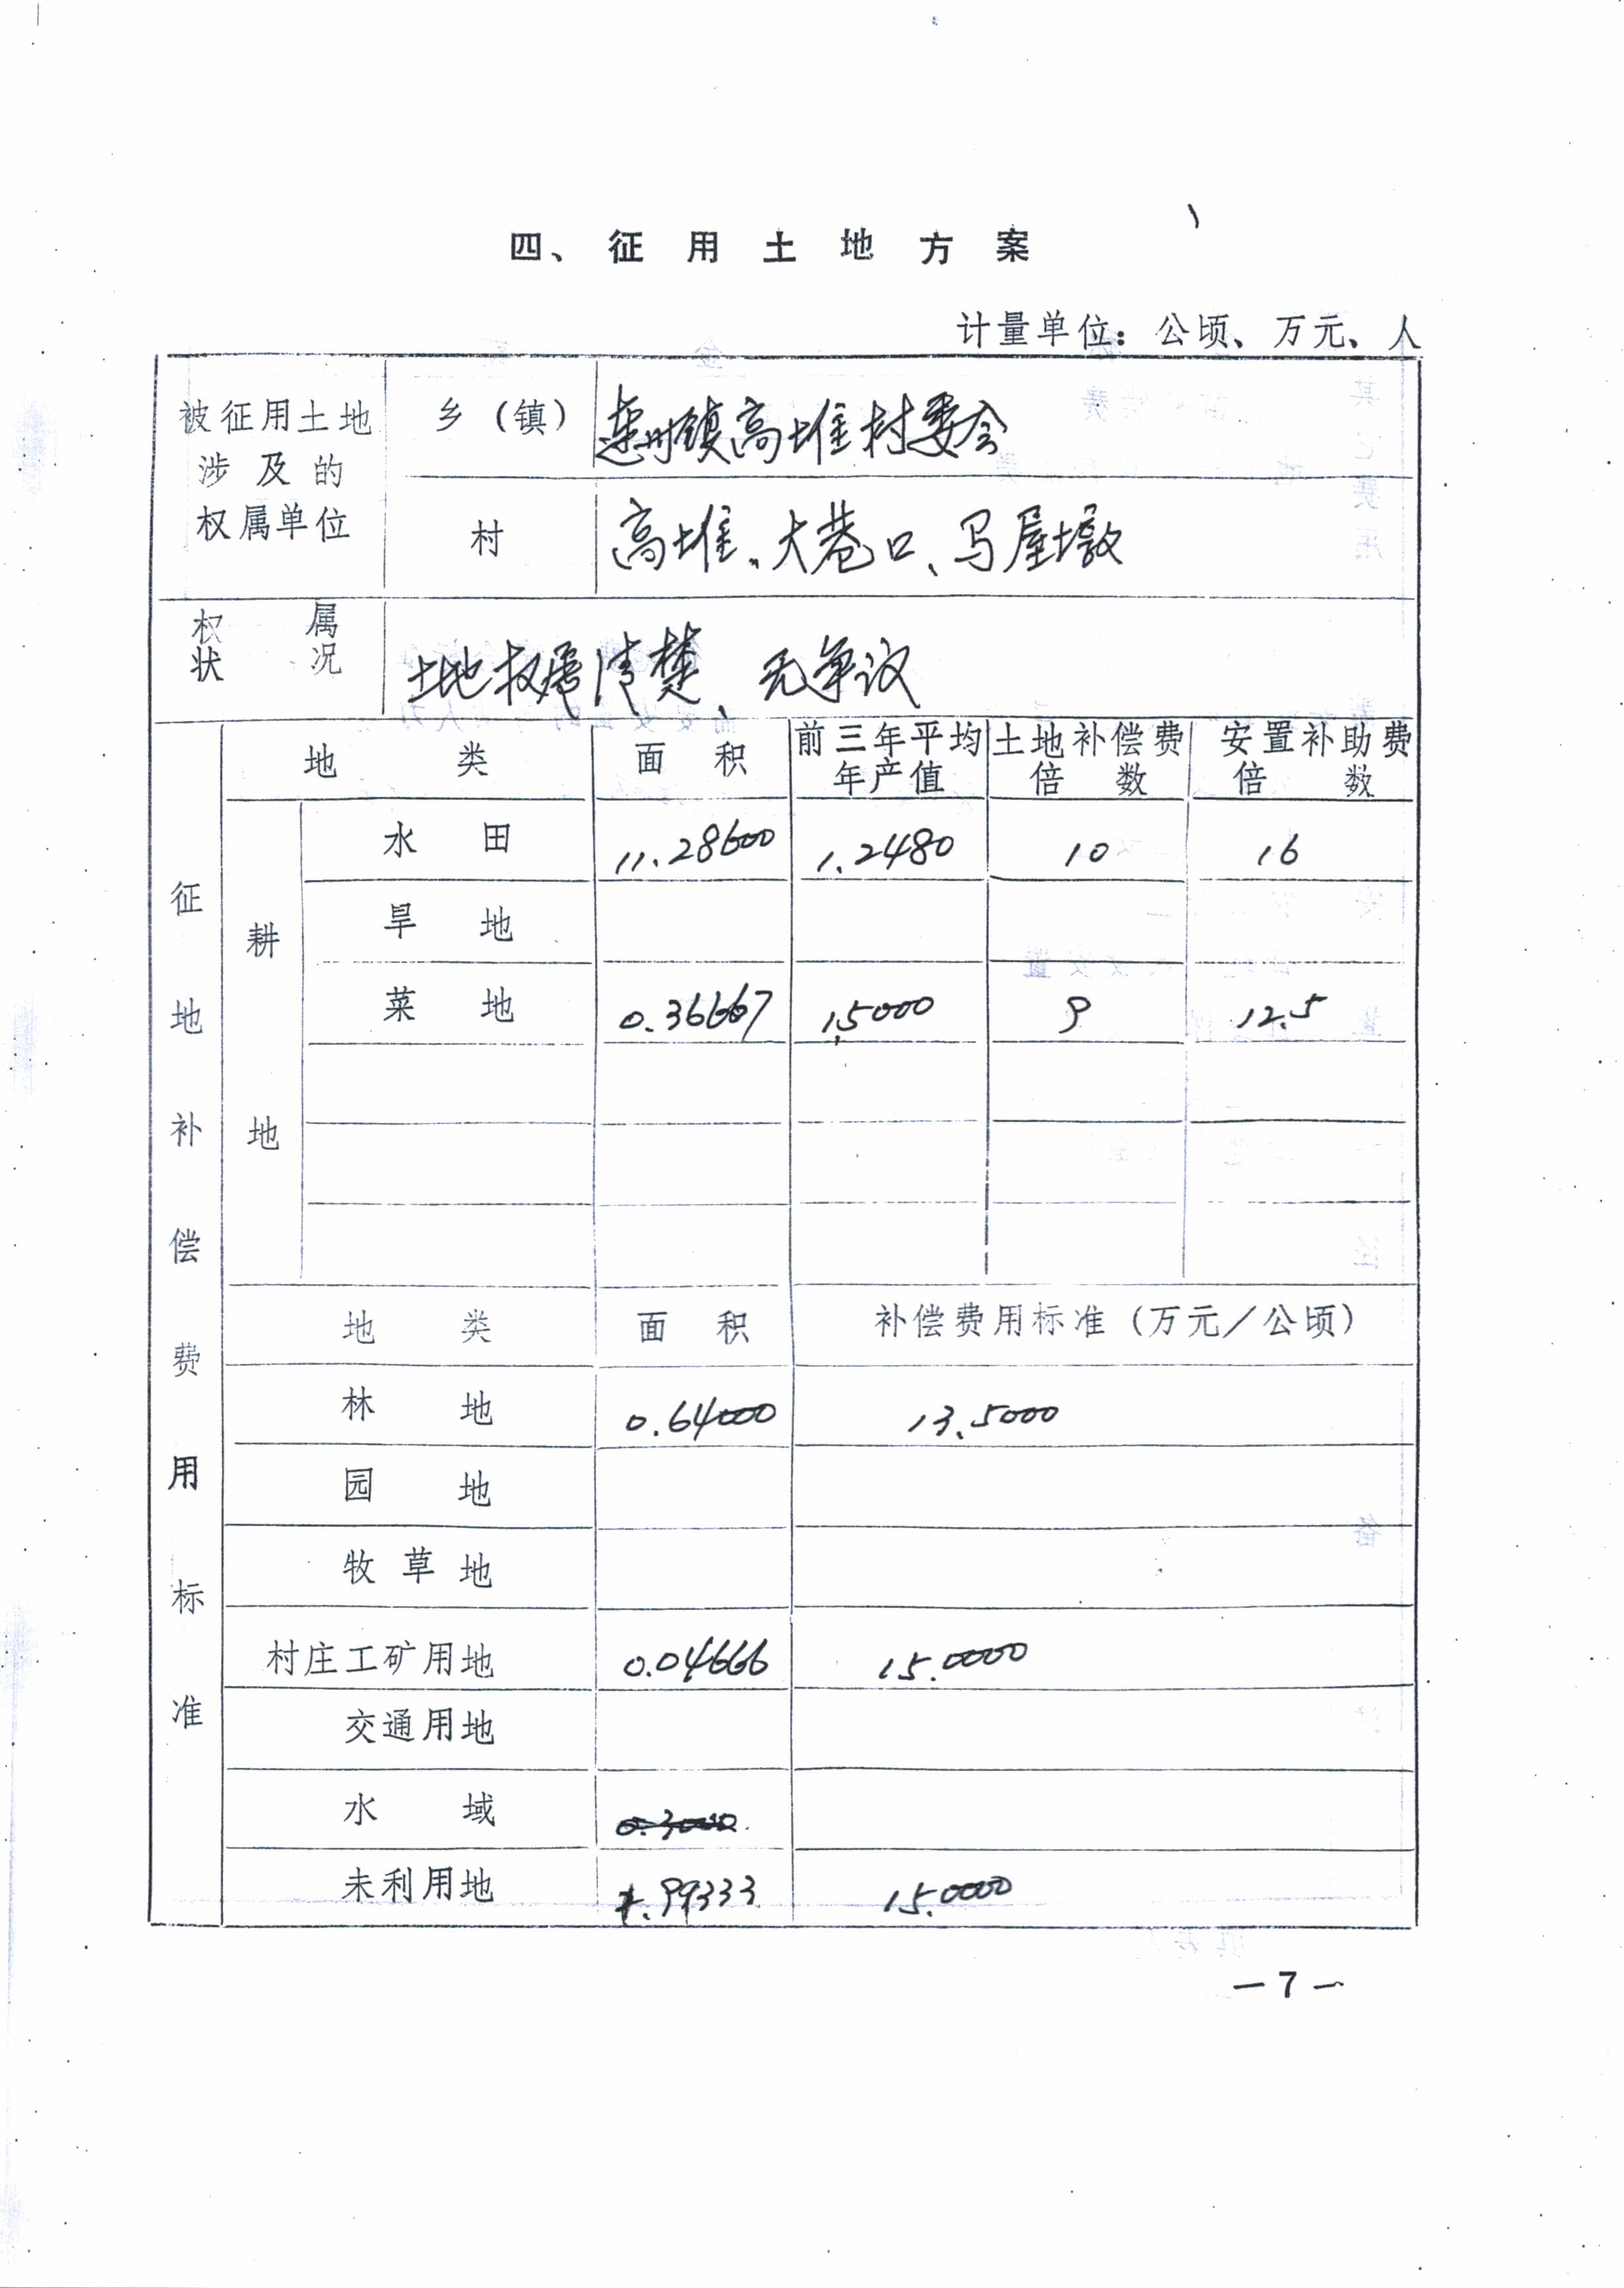 四、征用土地方案
计量单位：公顷、万元、人
被征用土地
涉及的
权属单位
乡（镇）
镇高堆村委会
村
高堆、大巷口、马屋墩
权属
状况
土地权属清楚、无争议
征地补偿费用标准
地类 面积 前三年平均年产值 土地补偿费倍数 安置补助费倍数
耕地
水田 11.28600 1.2480 10 16
旱地
菜地 0.36667 1.5000 9 12.5
地类 面积 补偿费用标准（万元／公顷）
林地 0.64000 13.5000
园地
牧草地
村庄工矿用地 0.04666 15.0000
交通用地
水域
未利用地 .99333 15.0000
—7—